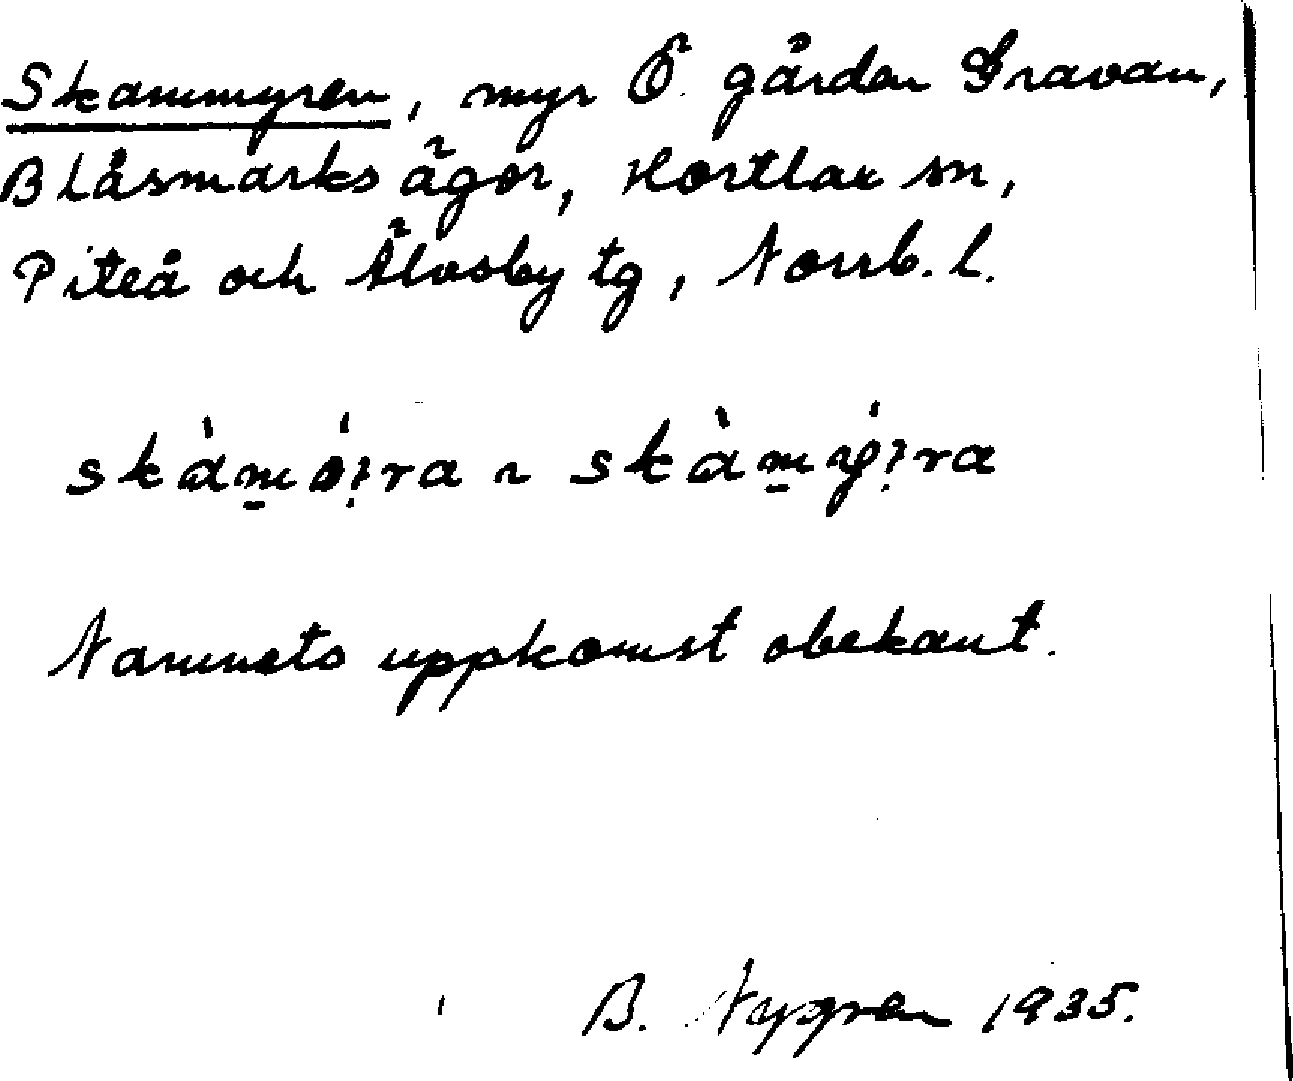 Skammyren, myr Ö. gården Gravan,
Blåsmarks ägor, Hortlax sn,
Piteå och Älvsby tg, Norrb. l.
Namnets uppkomst obekant.
B. Nygren 1935.